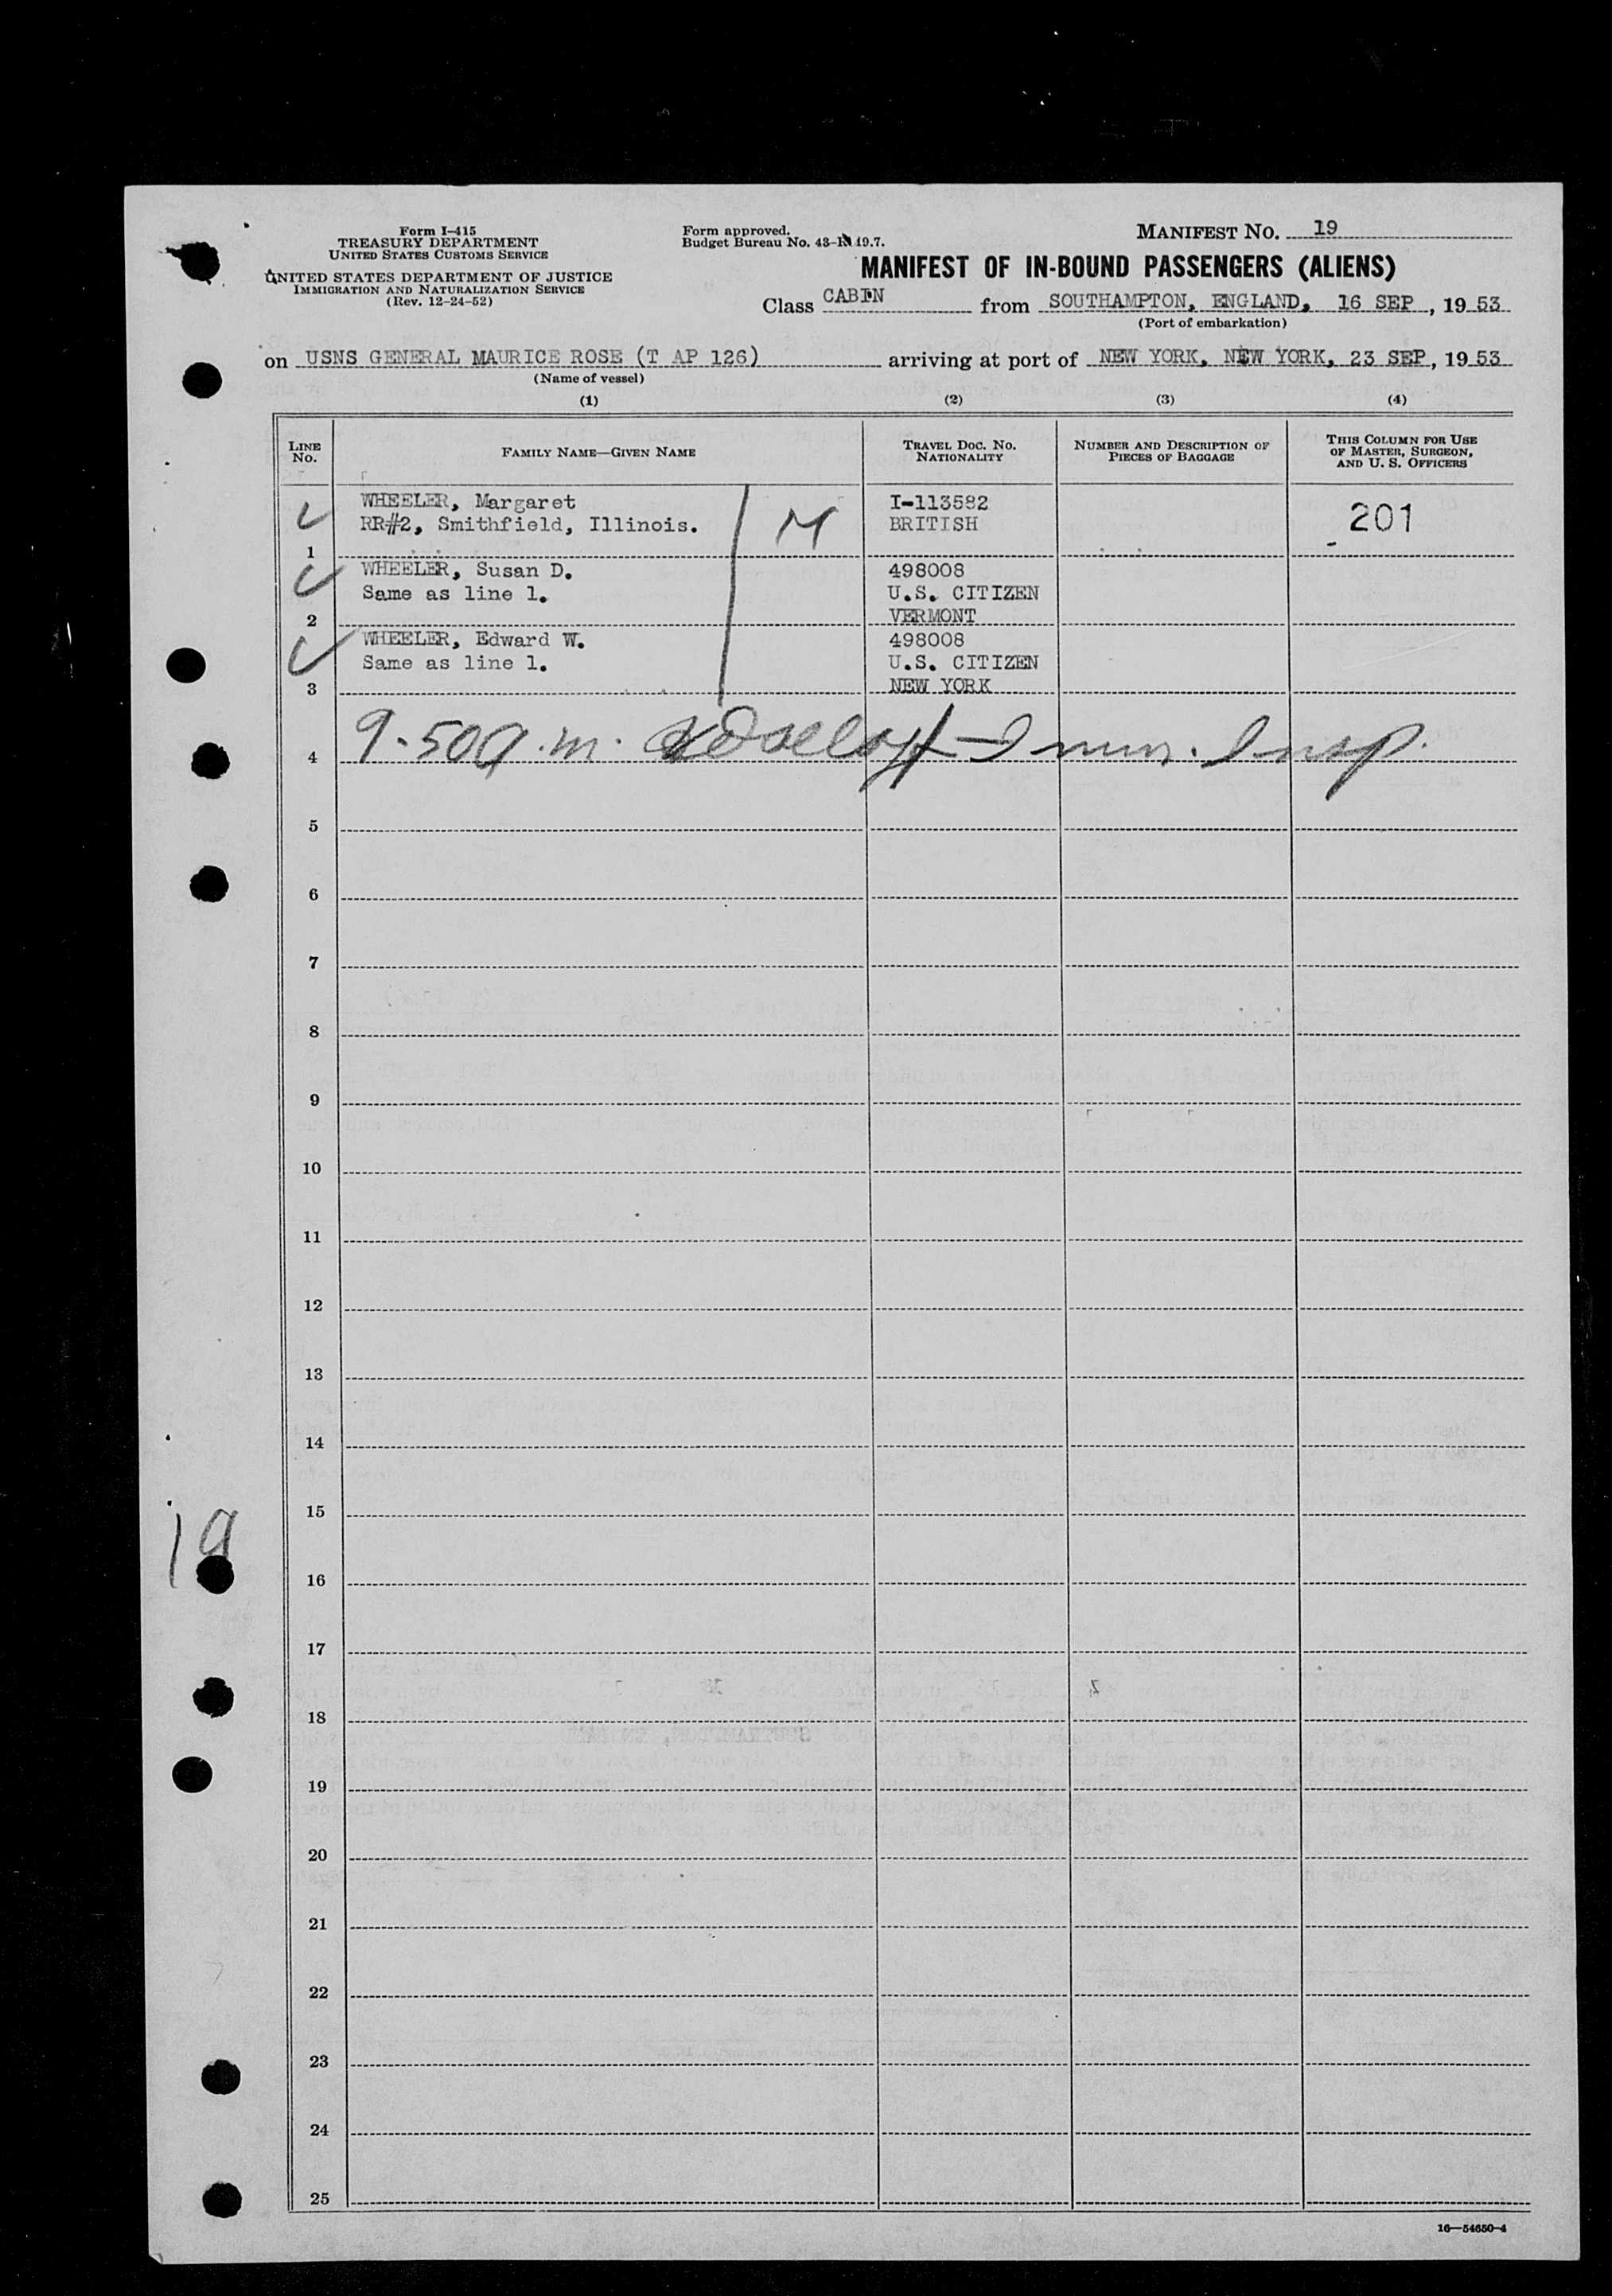 Form I-415
TREASURY DEPARTMENT
UNITED STATES CUSTOMS SERVICE
UNITED STATES DEPARTMENT OF JUSTICE
IMMIGRATION AND NATURALIZATION SERVICE
(Rev. 12-24-52)
Form approved.
Budget Bureau No. 43-R 49.7.
MANIFEST NO. 19
MANIFEST OF IN-BOUND PASSENGERS (ALIENS)
Class CABIN from SOUTHAMPTON, ENGLAND, 16 SEP, 1953
(Port of embarkation)
on USNS GENERAL MAURICE ROSE (T AP 126) arriving at port of NEW YORK, NEW YORK, 23 SEP, 1953
(Name of vessel)
(1) (2) (3) (4)
LINE NO.
FAMILY NAME—GIVEN NAME
TRAVEL DOC. NO. NATIONALITY
NUMBER AND DESCRIPTION OF PIECES OF BAGGAGE
THIS COLUMN FOR USE OF MASTER, SURGEON, AND U. S. OFFICERS
WHEELER, Margaret I-113582 201
RR#2, Smithfield, Illinois. M BRITISH
1
WHEELER, Susan D. 498008
Same as line 1. U.S. CITIZEN
2 VERMONT
WHEELER, Edward W. 498008
Same as line 1. U.S. CITIZEN
3 NEW YORK
4 9-50a.m. Immn. Insp.
5
6
7
8
9
10
11
12
13
14
15
19
16
17
18
19
20
21
22
23
24
25
16—54650-4